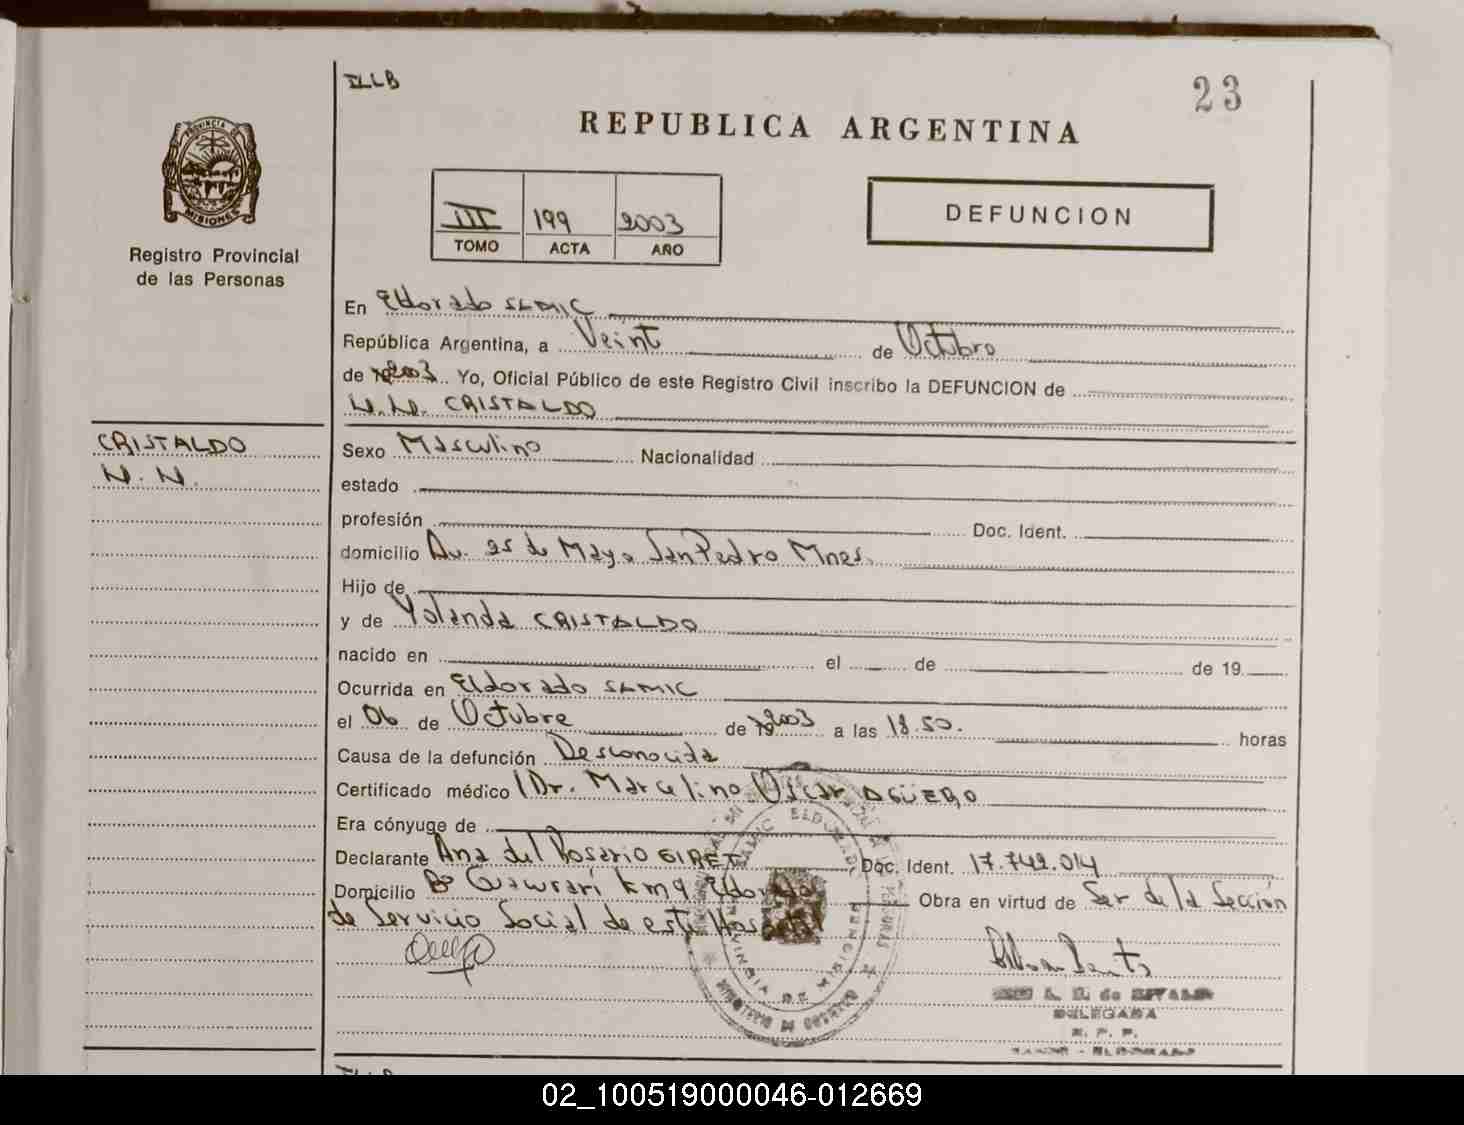 ILLB
23
REPUBLICA ARGENTINA
PROVINCIA DE
MISIONES
Registro Provincial
de las Personas
III 199 2003
TOMO ACTA AÑO
DEFUNCION
En Eldorado SAMIC
República Argentina, a Veint de Octubre
de 2003 Yo, Oficial Público de este Registro Civil inscribo la DEFUNCION de
N.N. CRISTALDO
CRISTALDO
N. N.
Sexo Masculino Nacionalidad
estado
profesión Doc. Ident.
domicilio Av. 25 de Mayo San Pedro Mnes.
Hijo de
y de Yolanda CRISTALDO
nacido en el de de 19
Ocurrida en Eldorado SAMIC
el 06 de Octubre de 2003 a las 18.50. horas
Causa de la defunción Desconocida
Certificado médico Dr. Marcelino Oscar AGÜERO
Era cónyuge de
Declarante Ana del Rosario GIRET Doc. Ident. 17.742.014
Domicilio Bº Guawrarí km9 Eldorado Obra en virtud de Ser de la Sección
de Servicio Social de este Hospital
SAMIC ELDORADO
PROVINCIA DE MISIONES
MINISTERIO DE GOBIERNO
DELEGADA
R. P. P.
SAMIC - ELDORADO
02_100519000046-012669